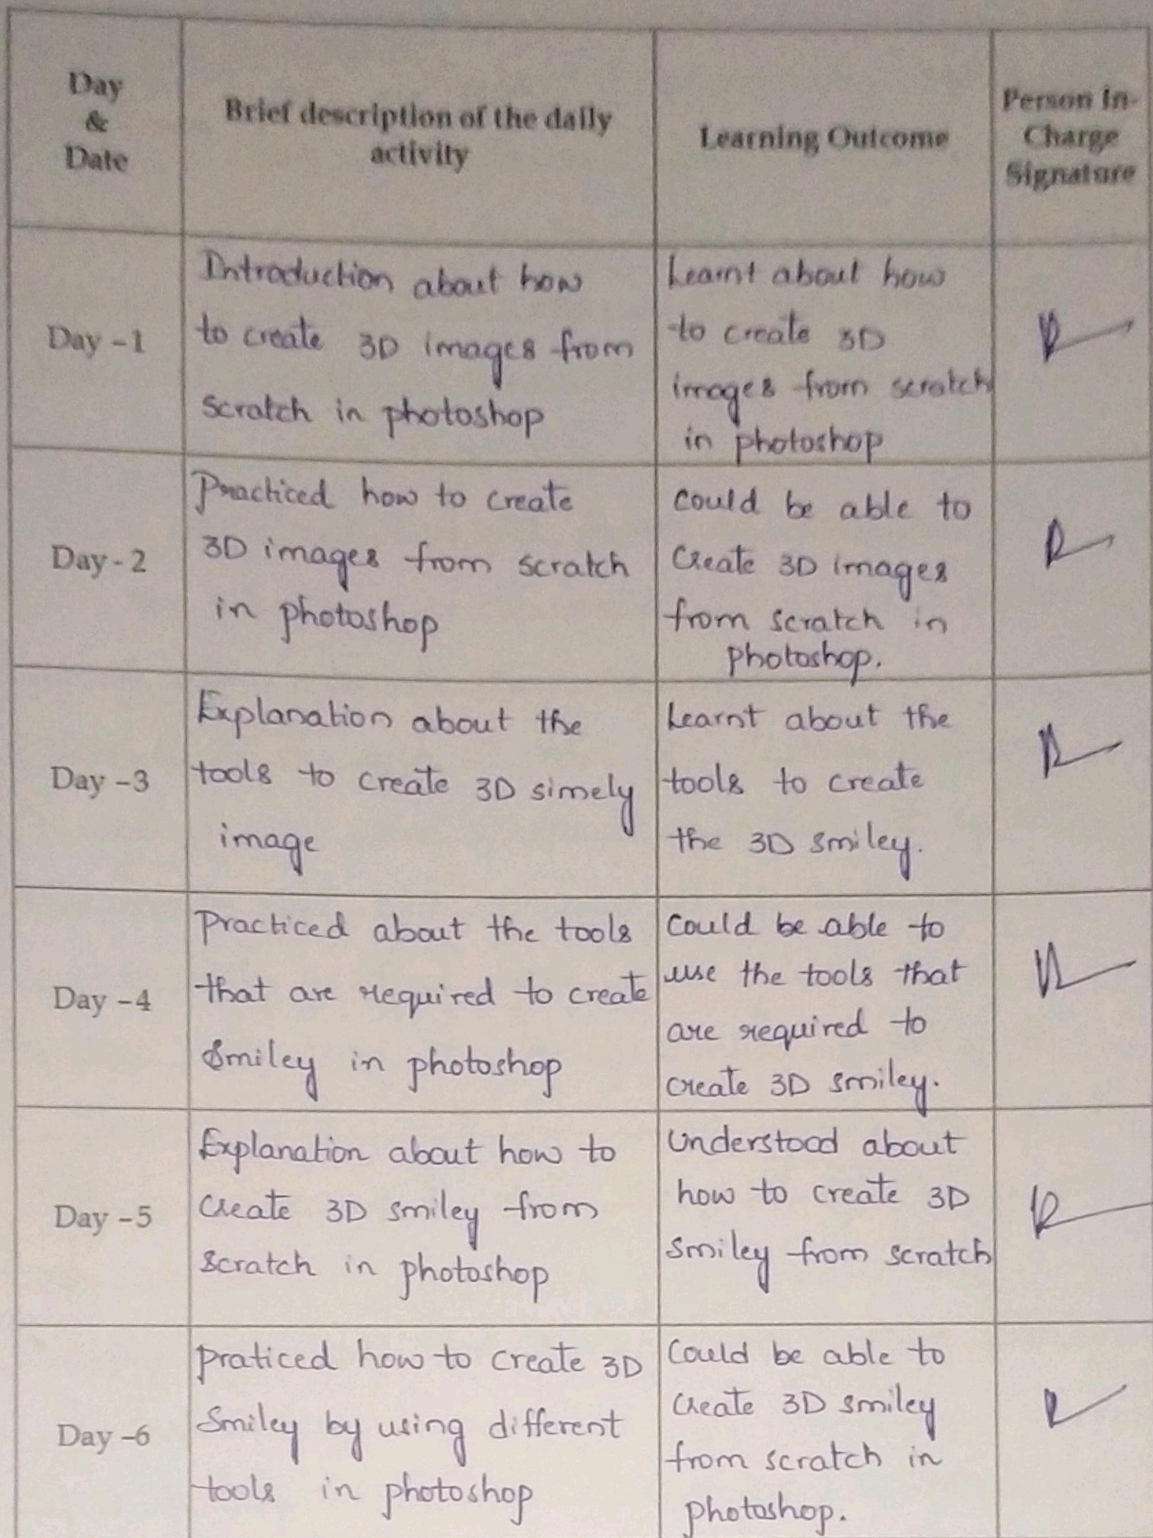 Day
&
Date
Brief description of the daily
activity
Learning Outcome
Person In-
Charge
Signature
Day -1
Introduction about how
to create 3D images from
scratch in photoshop
Learnt about how
to create 3D
images from scratch
in photoshop
Day - 2
Practiced how to create
3D images from scratch
in photoshop
Could be able to
create 3D images
from scratch in
photoshop.
Day -3
Explanation about the
tools to create 3D simely
image
Learnt about the
tools to create
the 3D smiley.
Day -4
Practiced about the tools
that are required to create
Smiley in photoshop
Could be able to
use the tools that
are required to
create 3D smiley.
Day -5
Explanation about how to
create 3D smiley from
scratch in photoshop
Understood about
how to create 3D
smiley from scratch
Day -6
praticed how to create 3D
Smiley by using different
tools in photoshop
Could be able to
create 3D smiley
from scratch in
photoshop.